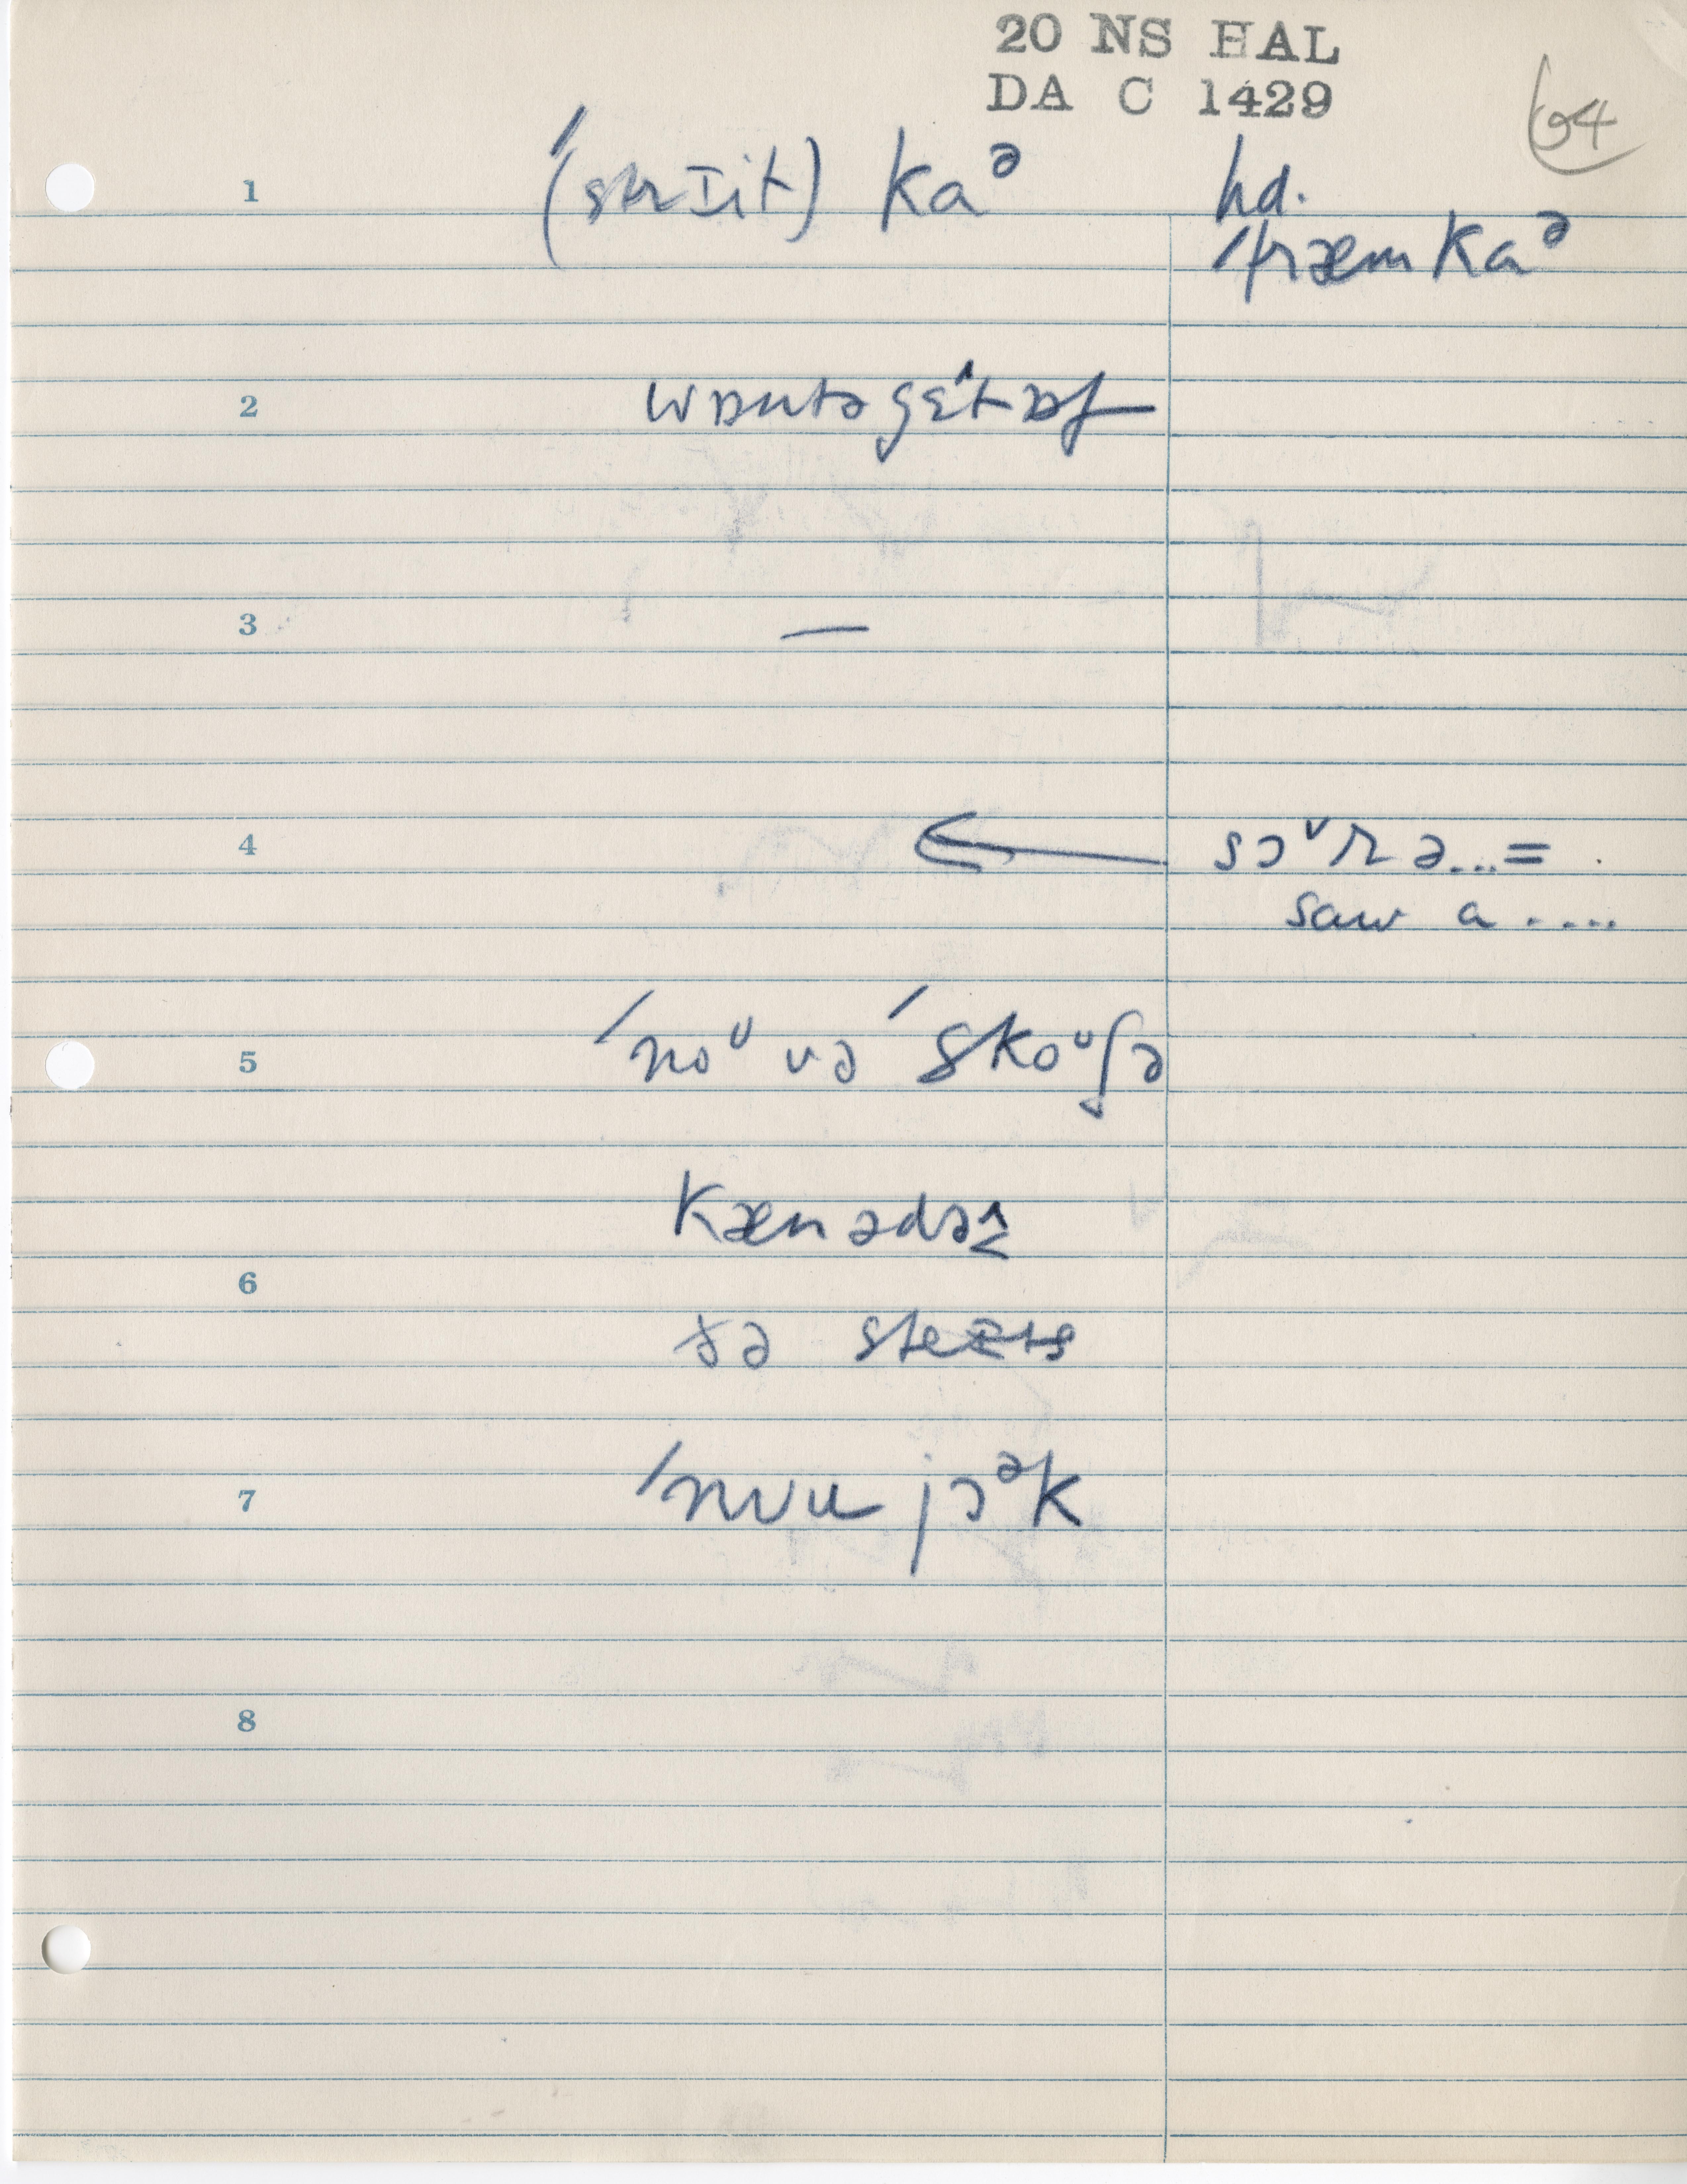 20 NS HAL
DA C 1429
64
1 ˈ(strɪit) kaᵊ hd.
ˈtræm kaᵊ
2 wɒntəgɛ^tɒf
3 —
4 ← sɔᵛrə...=
saw a .....
5 ˈnoᵁvəˈskoᵁʃə
kænədə
6
ðə steɪts
7 ˈnuu jɔᵊk
8